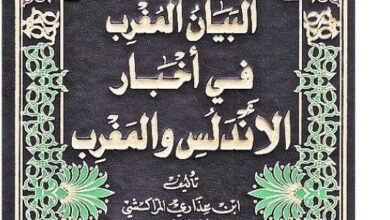 البيان المغرب
في أخبار
الأندلس والمغرب
تأليف
ابن عذاري المراكشي